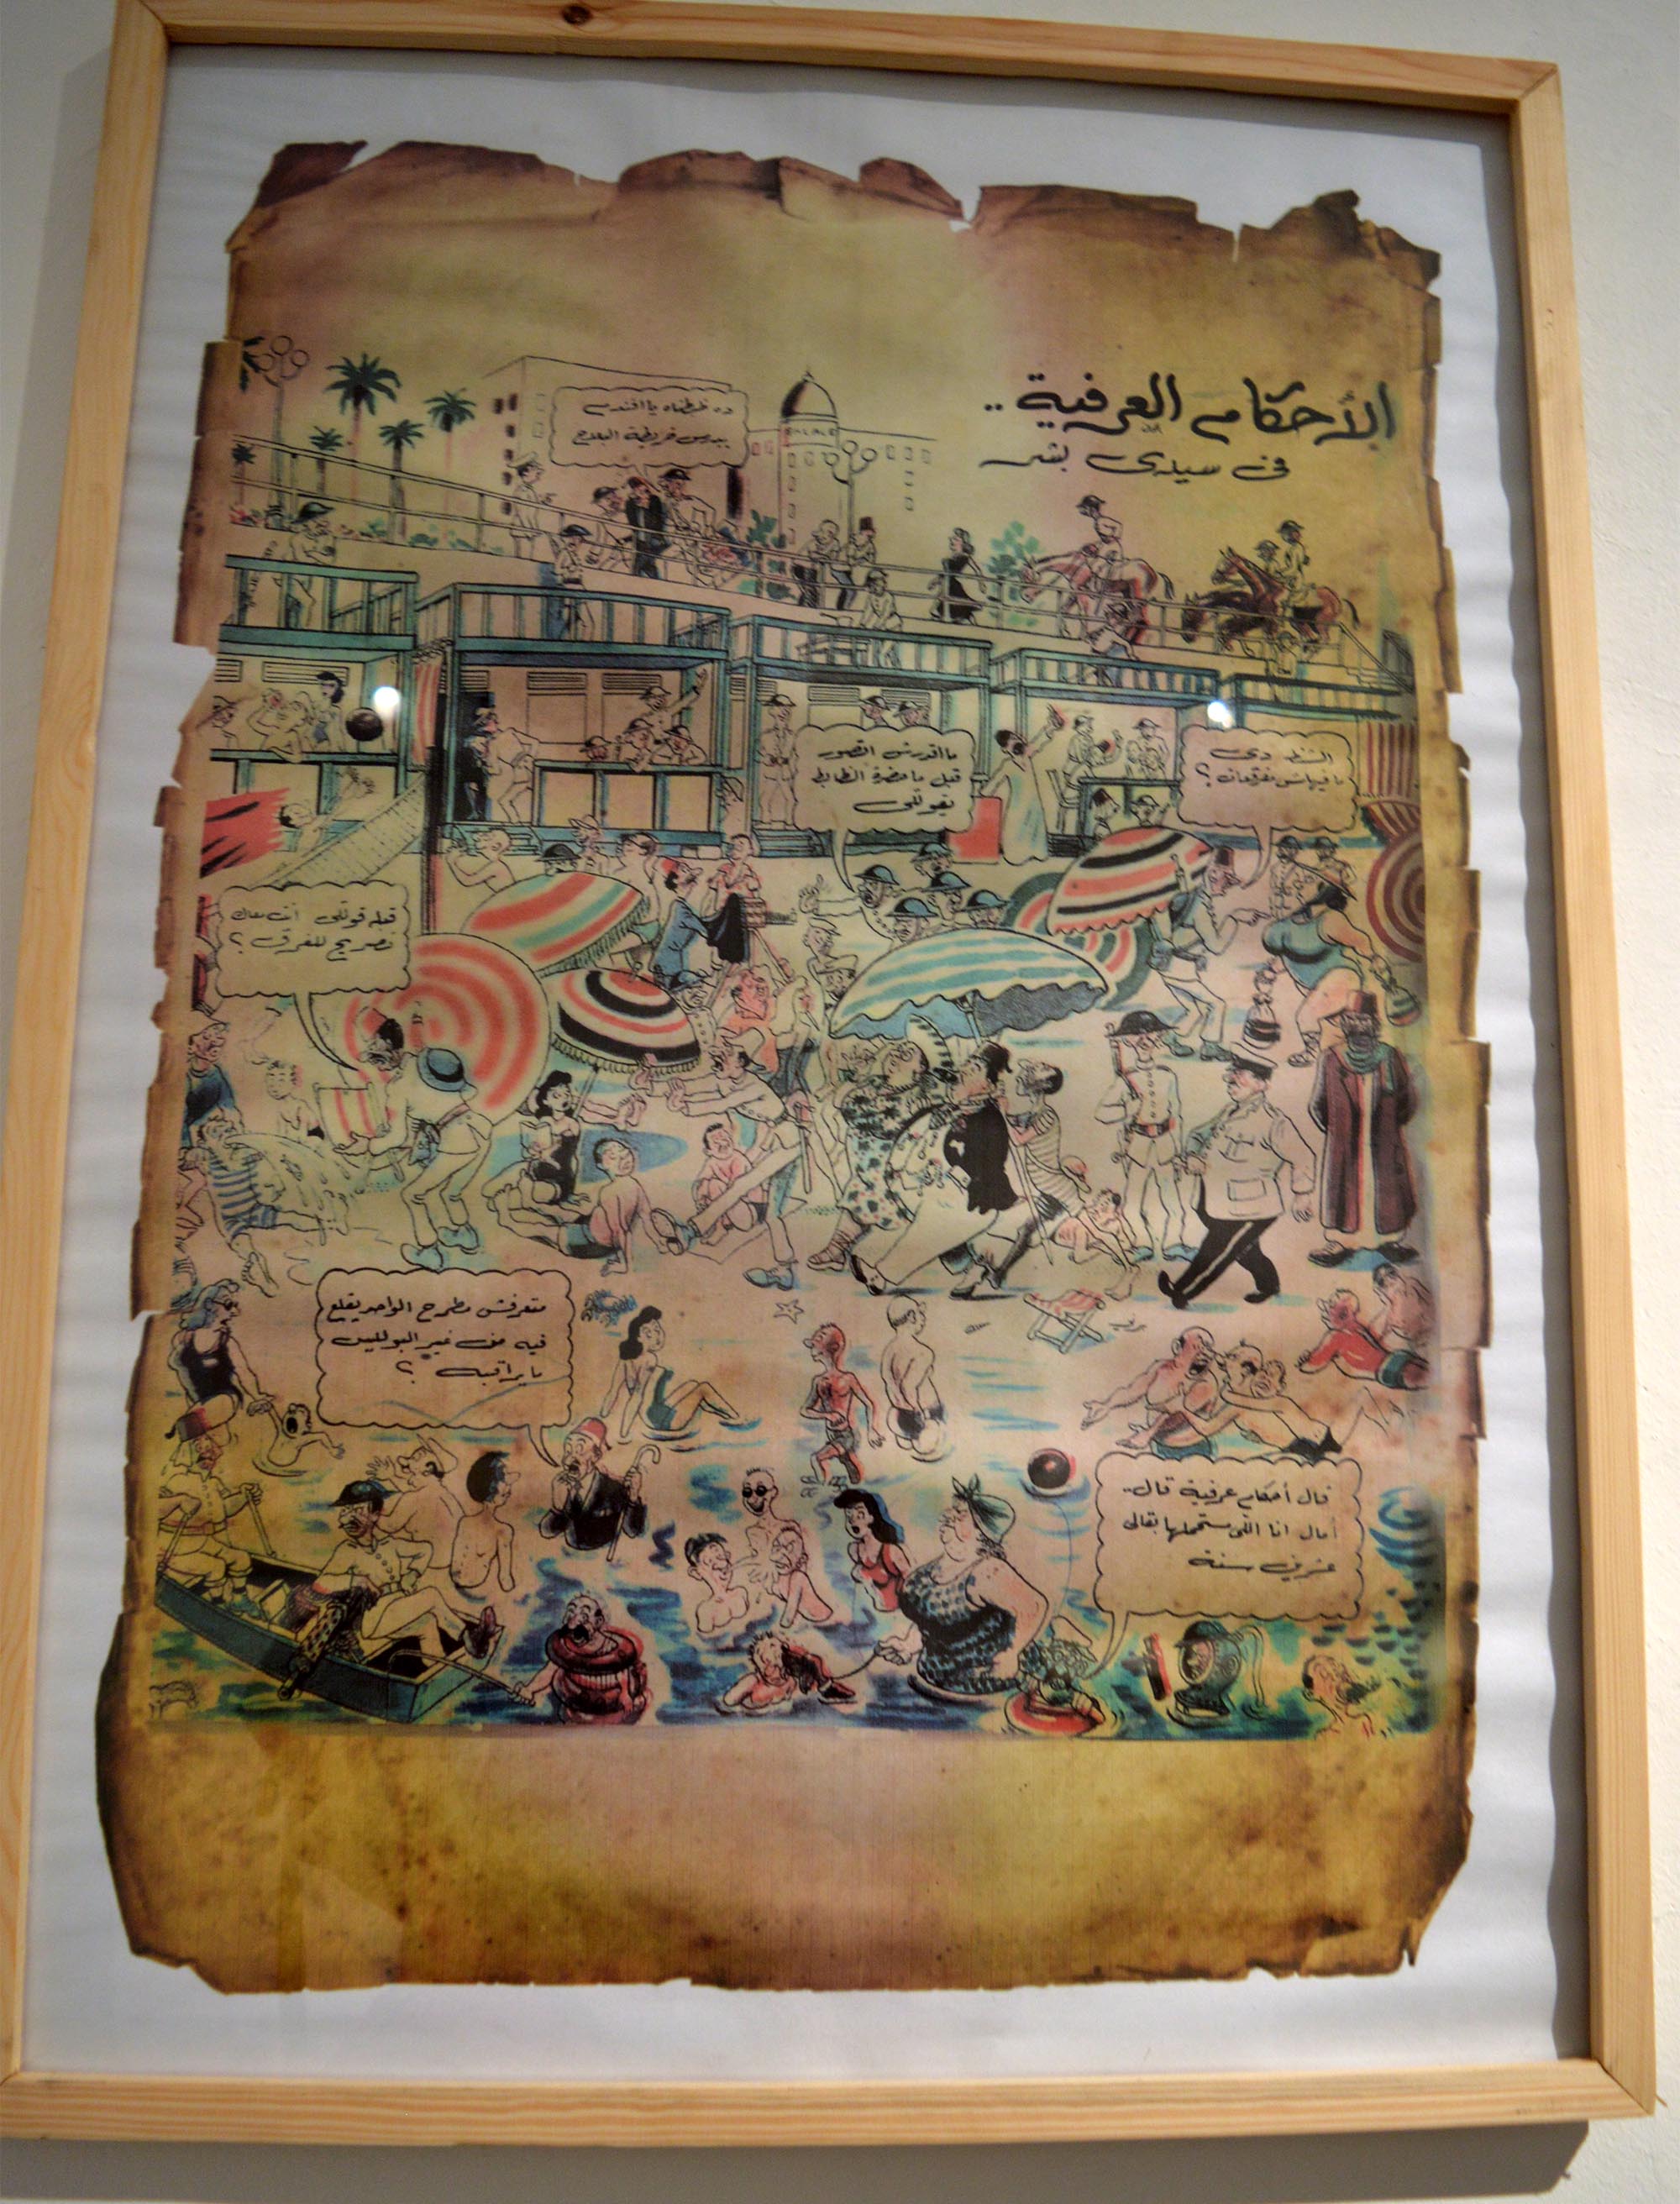 الأحكام العرفية ..
فى سيدى بشر
ده ظبطناه يا افندم
بيدرس خريطة البلاج
PALACE
ما اقدرش اتصور
قبل ما حضرة الظابط
يقوللى
الشنط دى
ما فيهاش مفرقعات ؟
قبله قوللى انت معاك
تصريح للغرق ؟
متعرفش مطرح الواحد يقلع
فيه من غير البوليس
ما يراقبه ؟
قال أحكام عرفية قال..
أمال انا اللى مستحملها بقالى
عشرين سنة